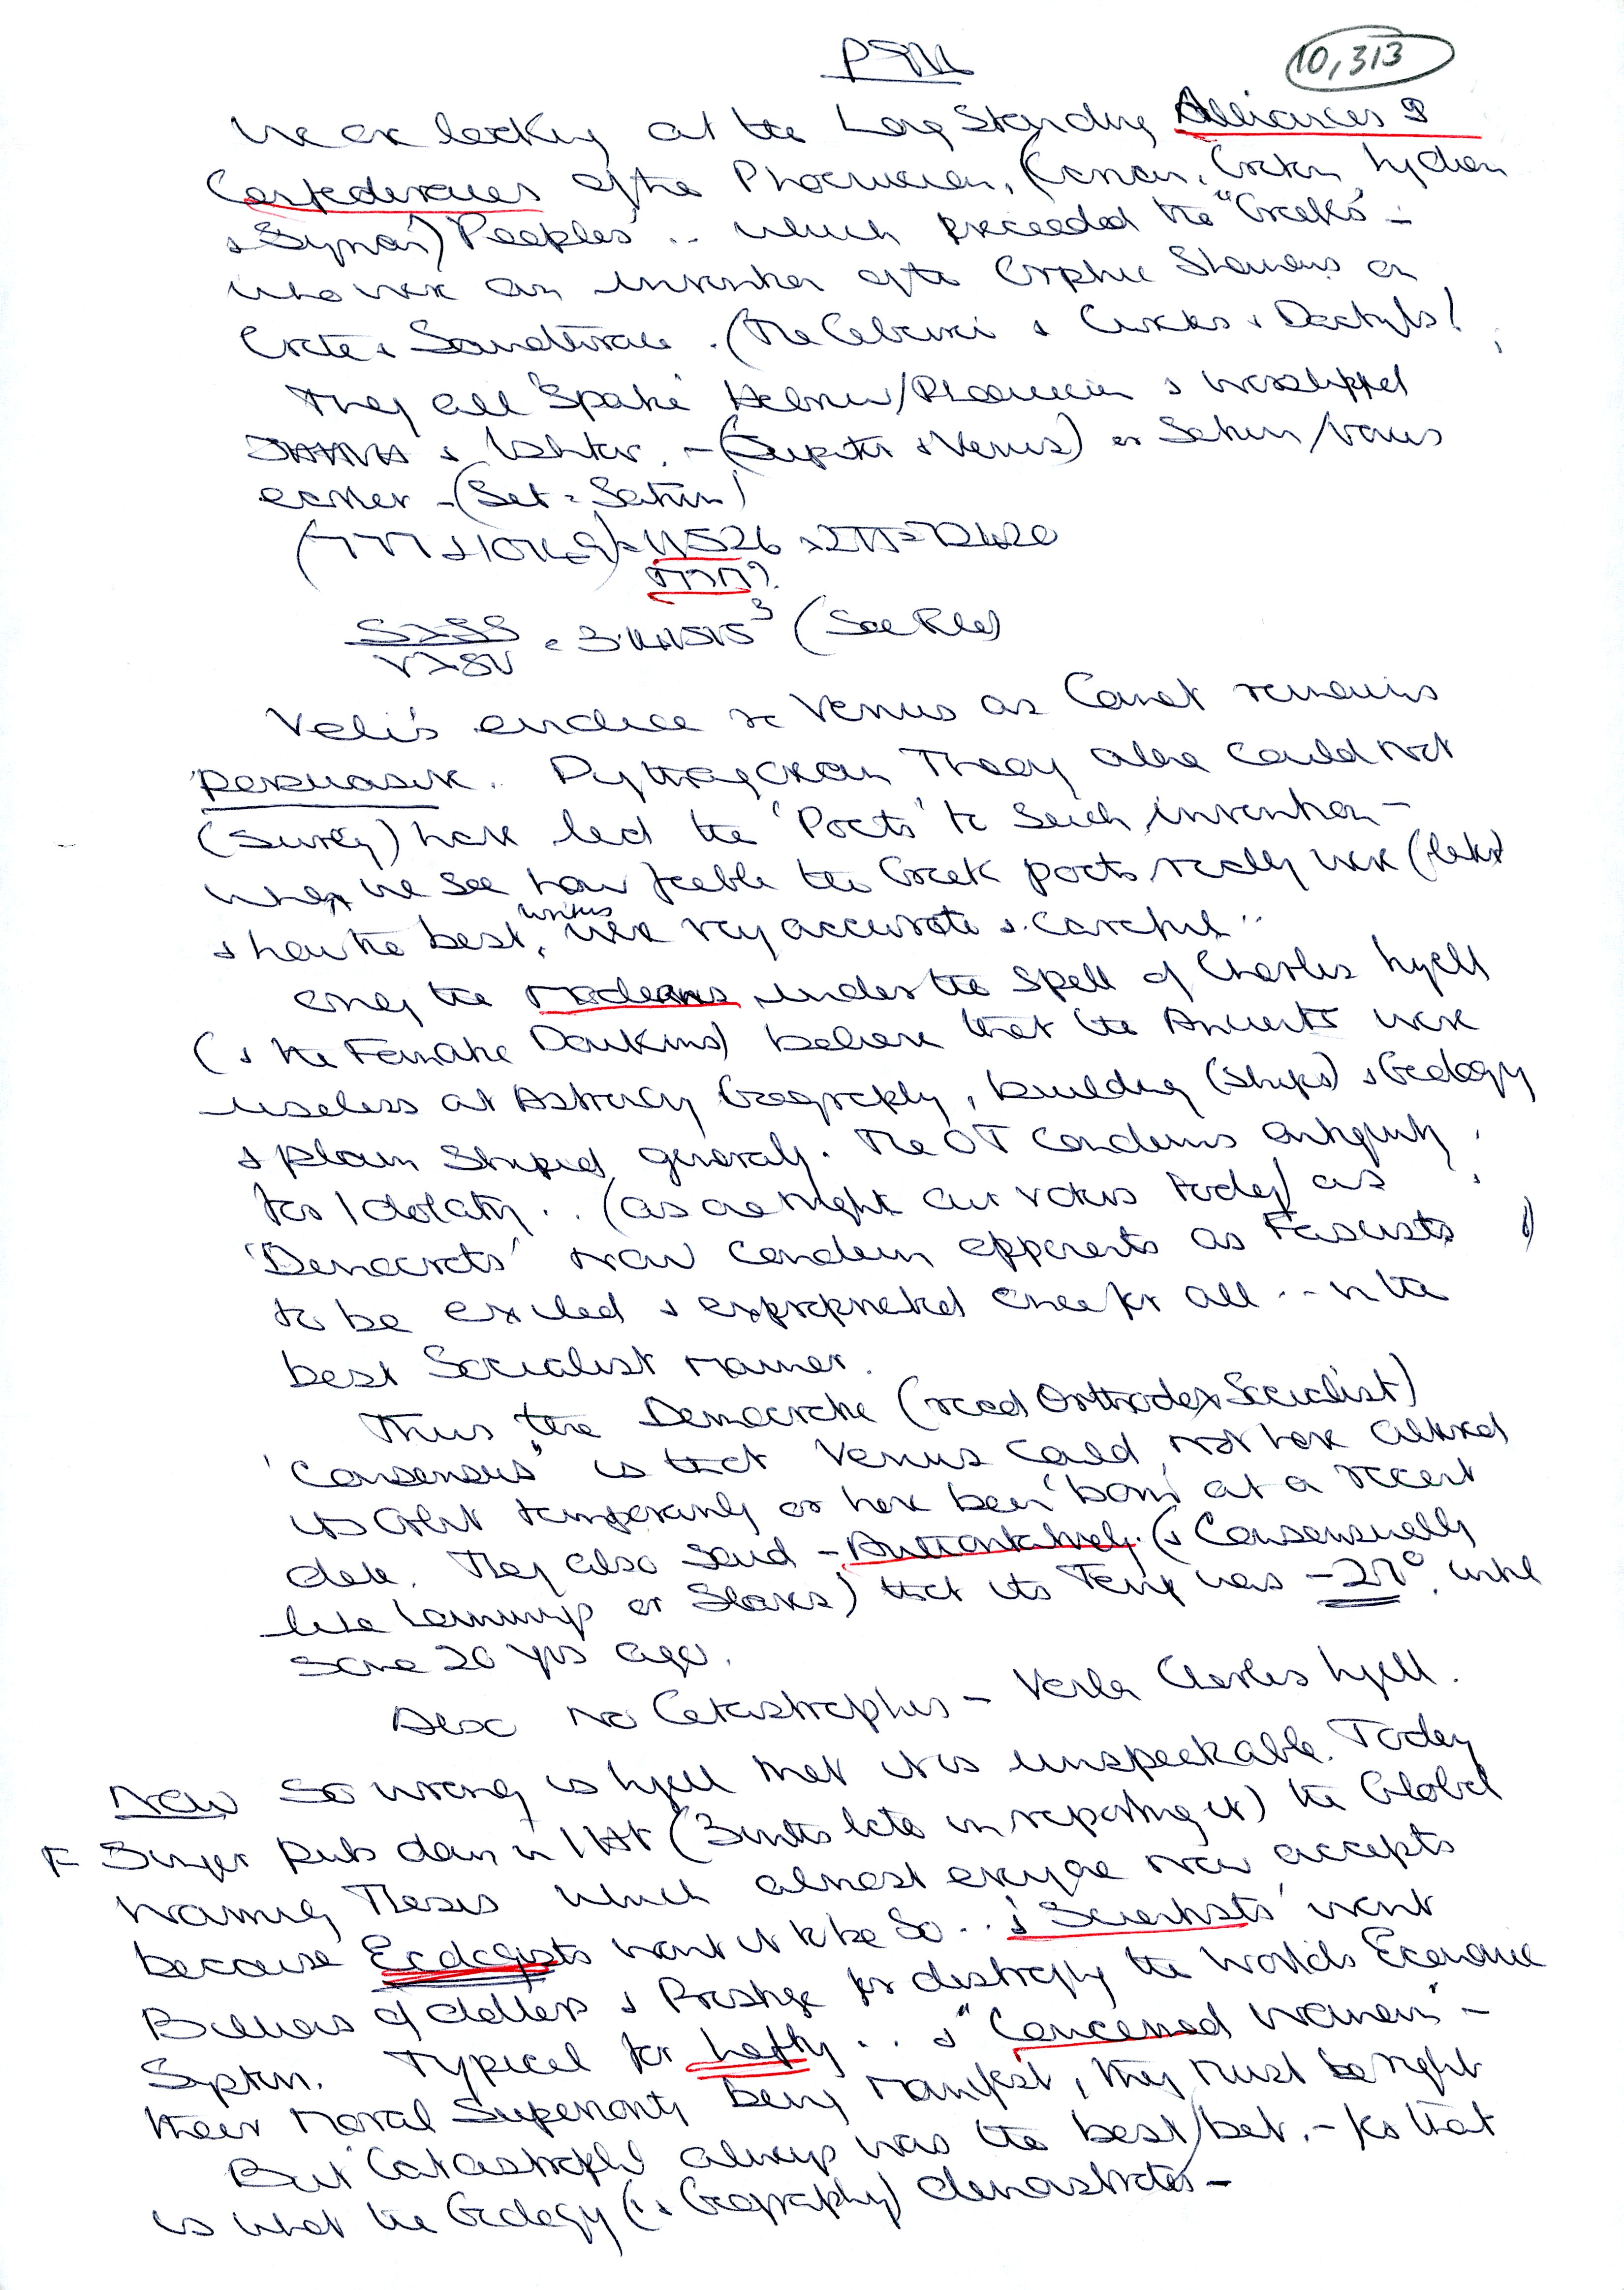 10,313
We are looking at the Long Standing Alliances &
Confederacies of the Phoenician, (Carian, Cretan, Lydian
& Syrian) Peoples .. which preceeded the "Greeks" -
who were an invention of the Orphic Shamans on
Crete & Samothrace. (The Cabeiri & Curetes & Dactyls!
They all 'spoke' Hebrew/Phoenician & worshipped
& Ishtar. - (Jupiter & Venus) or Saturn/Venus
earlier - (Set = Saturn)
= 3.141515³ (See Files)
Veli's evidence re Venus as Comet remains
persuasive. Pythagorean Theory alone could not
(surely) have led the 'Poets' to such invention -
when we see how feeble the Greek poets really were (later)
& how the best, writers were very accurate & careful ..
Only the moderns under the spell of Charles Lyell
(& the Dawkins) believe that the Ancients were
useless at Astronomy Geography, building (ships) & Geology
& plain stupid generally. The OT condemns antiquity
for Idolatry .. (as one might our voters today) as
'Democrats' now condem opponents as Fascists
to be exiled & expropriated once for all ... in the
best Socialist manner.
Thus the Democratic (read Orthodox Socialist)
'Consensus" is that Venus could not have altered
its Orbit temporarily or have been 'born' at a recent
date. They also said - Authoritatively (& Consensually
like Lemmings or Slaves) that its Temp was until
some 20 yrs ago.
Also No Catastrophes - Charles Lyell.
Now so wrong is Lyell that it is unspeakable. Today
F Singer puts down in IHT (3 mths late in reporting it) the Global
Warming Thesis which almost everyone now accepts
because Ecologists want it to be so .. & 'Scientists' want
Billions of dollars & Prestige for destroying the World's Economic
System. Typical for Lefty ... & "Concerned Women" -
their Moral Superiority being manifest, they must be right
But 'Catastrophe' always was the best/bet. - for that
is what the Geology (& Geography) demonstrates -